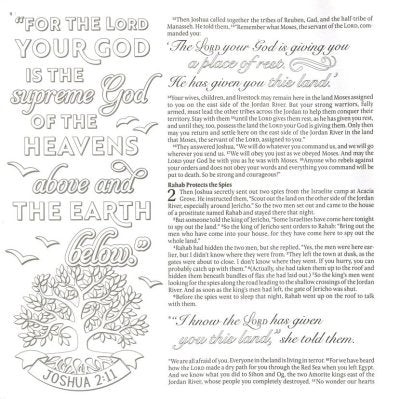 "FOR THE LORD
YOUR GOD
IS THE
supreme God
OF THE
HEAVENS
above and
THE EARTH
below."
JOSHUA 2:11
12Then Joshua called together the tribes of Reuben, Gad, and the half-tribe of
Manasseh. He told them, 13"Remember what Moses, the servant of the LORD, com-
manded you:
'The LORD your God is giving you
a place of rest.
He has given you this land.'
14Your wives, children, and livestock may remain here in the land Moses assigned
to you on the east side of the Jordan River. But your strong warriors, fully
armed, must lead the other tribes across the Jordan to help them conquer their
territory. Stay with them 15until the LORD gives them rest, as he has given you rest,
and until they, too, possess the land the LORD your God is giving them. Only then
may you return and settle here on the east side of the Jordan River in the land
that Moses, the servant of the LORD, assigned to you."
16They answered Joshua, "We will do whatever you command us, and we will go
wherever you send us. 17We will obey you just as we obeyed Moses. And may the
LORD your God be with you as he was with Moses. 18Anyone who rebels against
your orders and does not obey your words and everything you command will be
put to death. So be strong and courageous!"
Rahab Protects the Spies
2 Then Joshua secretly sent out two spies from the Israelite camp at Acacia
Grove. He instructed them, "Scout out the land on the other side of the Jordan
River, especially around Jericho." So the two men set out and came to the house
of a prostitute named Rahab and stayed there that night.
2But someone told the king of Jericho, "Some Israelites have come here tonight
to spy out the land." 3So the king of Jericho sent orders to Rahab: "Bring out the
men who have come into your house, for they have come here to spy out the
whole land."
4Rahab had hidden the two men, but she replied, "Yes, the men were here ear-
lier, but I didn't know where they were from. 5They left the town at dusk, as the
gates were about to close. I don't know where they went. If you hurry, you can
probably catch up with them." 6(Actually, she had taken them up to the roof and
hidden them beneath bundles of flax she had laid out.) 7So the king's men went
looking for the spies along the road leading to the shallow crossings of the Jordan
River. And as soon as the king's men had left, the gate of Jericho was shut.
8Before the spies went to sleep that night, Rahab went up on the roof to talk
with them.
9"I know the LORD has given
you this land," she told them.
"We are all afraid of you. Everyone in the land is living in terror. 10For we have heard
how the LORD made a dry path for you through the Red Sea when you left Egypt.
And we know what you did to Sihon and Og, the two Amorite kings east of the
Jordan River, whose people you completely destroyed. 11No wonder our hearts